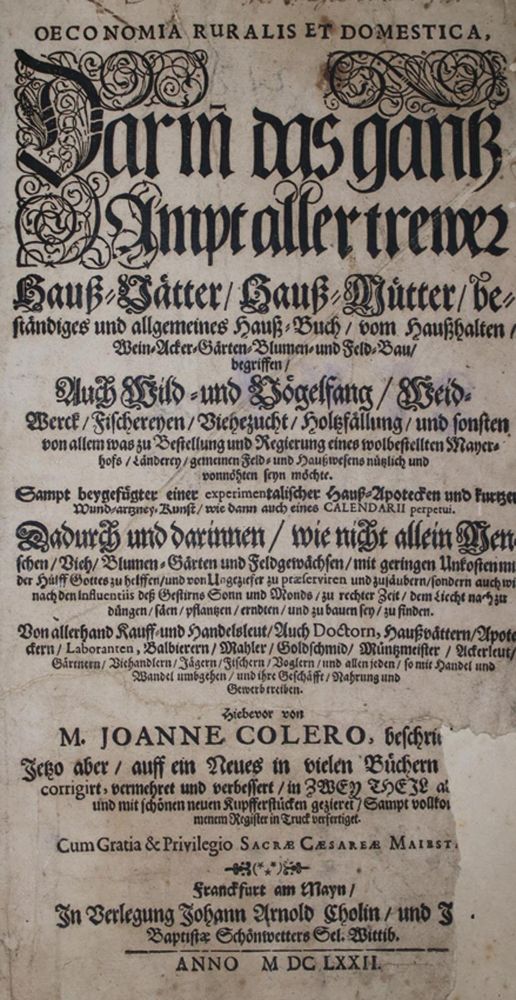 OECONOMIA RURALIS ET DOMESTICA,
Darin̄ das gantz
Ampt aller trewer
Hauß-Vätter / Hauß-Mütter / be-
ständiges und allgemeines Hauß-Buch / vom Haußhalten /
Wein-Acker-Gärten-Blumen-und Feld-Bau /
begriffen /
Auch Wild-und Vögelfang / Weid-
Werck / Fischereyen / Viehezucht / Holtzfällung / und sonsten
von allem was zu Bestellung und Regierung eines wolbestellten Mayer-
hofs / Länderey / gemeinen Feld- und Haußwesens nützlich und
vonnöhten seyn möchte.
Sampt beygefügter einer experimentalischer Hauß-Apotecken und kurtzer
Wund-artzney-Kunst / wie dann auch eines CALENDARII perpetui.
Dadurch und darinnen / wie nicht allein Men-
schen / Vieh / Blumen-Gärten und Feldgewächsen / mit geringen Unkosten mit
der Hülff Gottes zu helffen / und von Ungeziefer zu præserviren und zusäubern / sondern auch wie
nach den Influentiis deß Gestirns Sonn und Monds / zu rechter Zeit / dem Liecht nach zu
düngen / säen / pflantzen / erndten / und zu bauen sey / zu finden.
Von allerhand Kauff-und Handelsleut / Auch Doctorn, Haußvättern / Apote-
ckern / Laboranten, Balbierern / Mahler / Goldschmid / Müntzmeister / Ackerleut /
Gärtnern / Viehandlern / Jägern / Fischern / Voglern / und allen jeden / so mit Handel und
Wandel umbgehen / und ihre Geschäfft / Nahrung und
Gewerb treiben.
Hiebevor von
M. JOANNE COLERO, beschri
Jetzo aber / auff ein Neues in vielen Büchern
corrigirt, vermehret und verbessert / in ZWEY THEIL a
und mit schönen neuen Kupfferstücken gezieret / Sampt vollko
menem Register in Truck verfertiget.
Cum Gratia & Privilegio SACRÆ CÆSAREÆ MAIEST.
(*⁎*)
Franckfurt am Mayn /
In Verlegung Johann Arnold Cholin / und J
Baptistæ Schönwetters Sel. Wittib.
ANNO M DC LXXII.